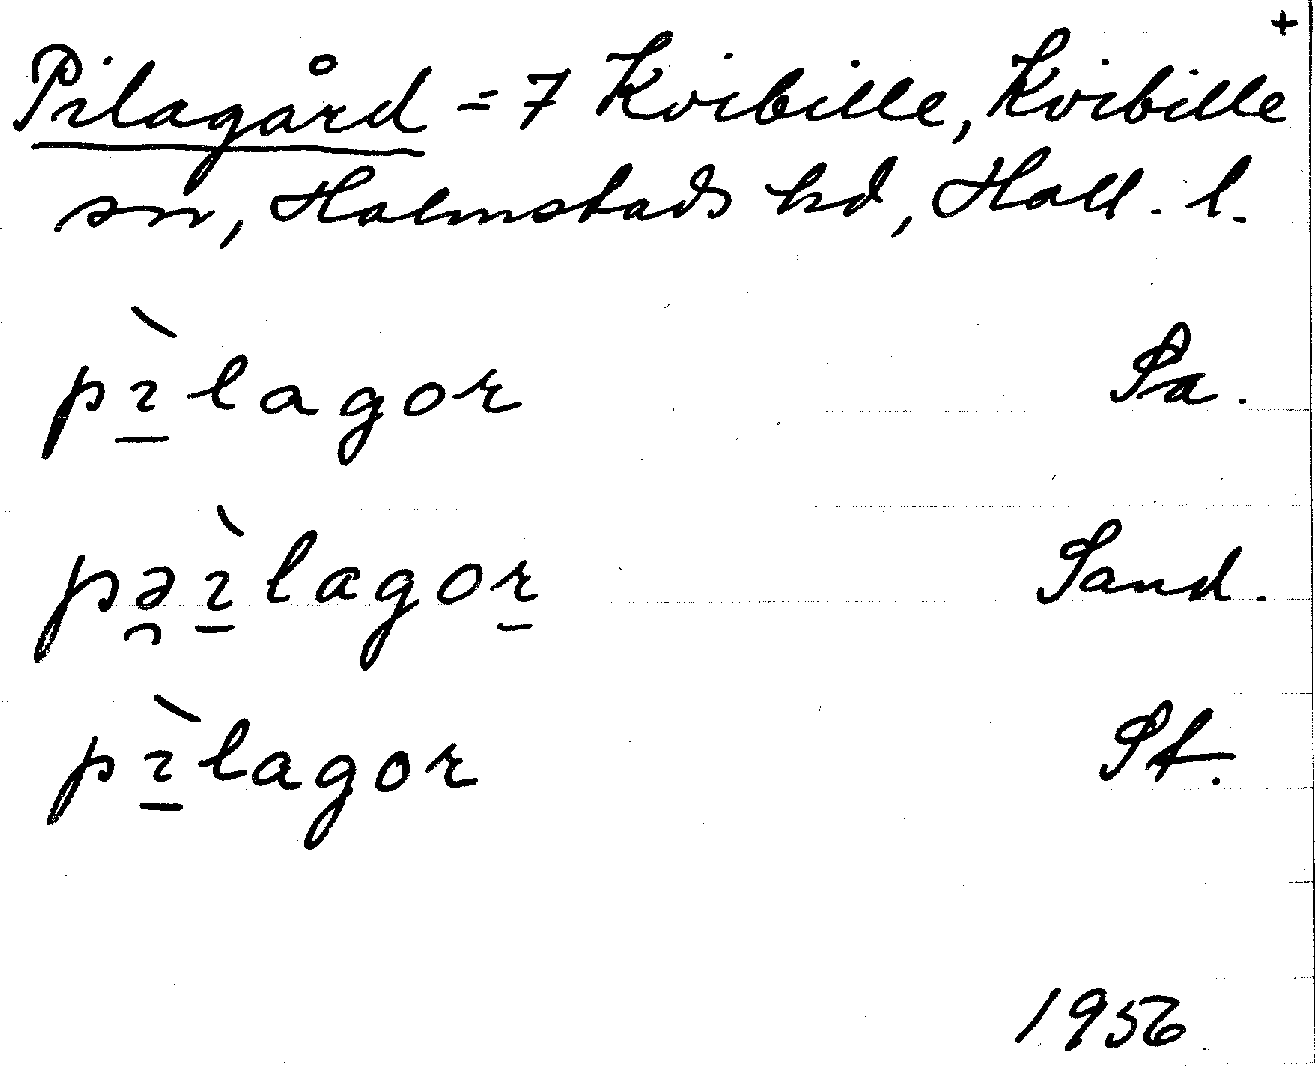 +
Pilagård = 7 Kvibille, Kvibille
sn, Halmstads hd, Hall. l.
pı̱̀lagor Pa.
pə̯ı̱̀lagor̠ Sand.
pı̱̀lagor St.
1956